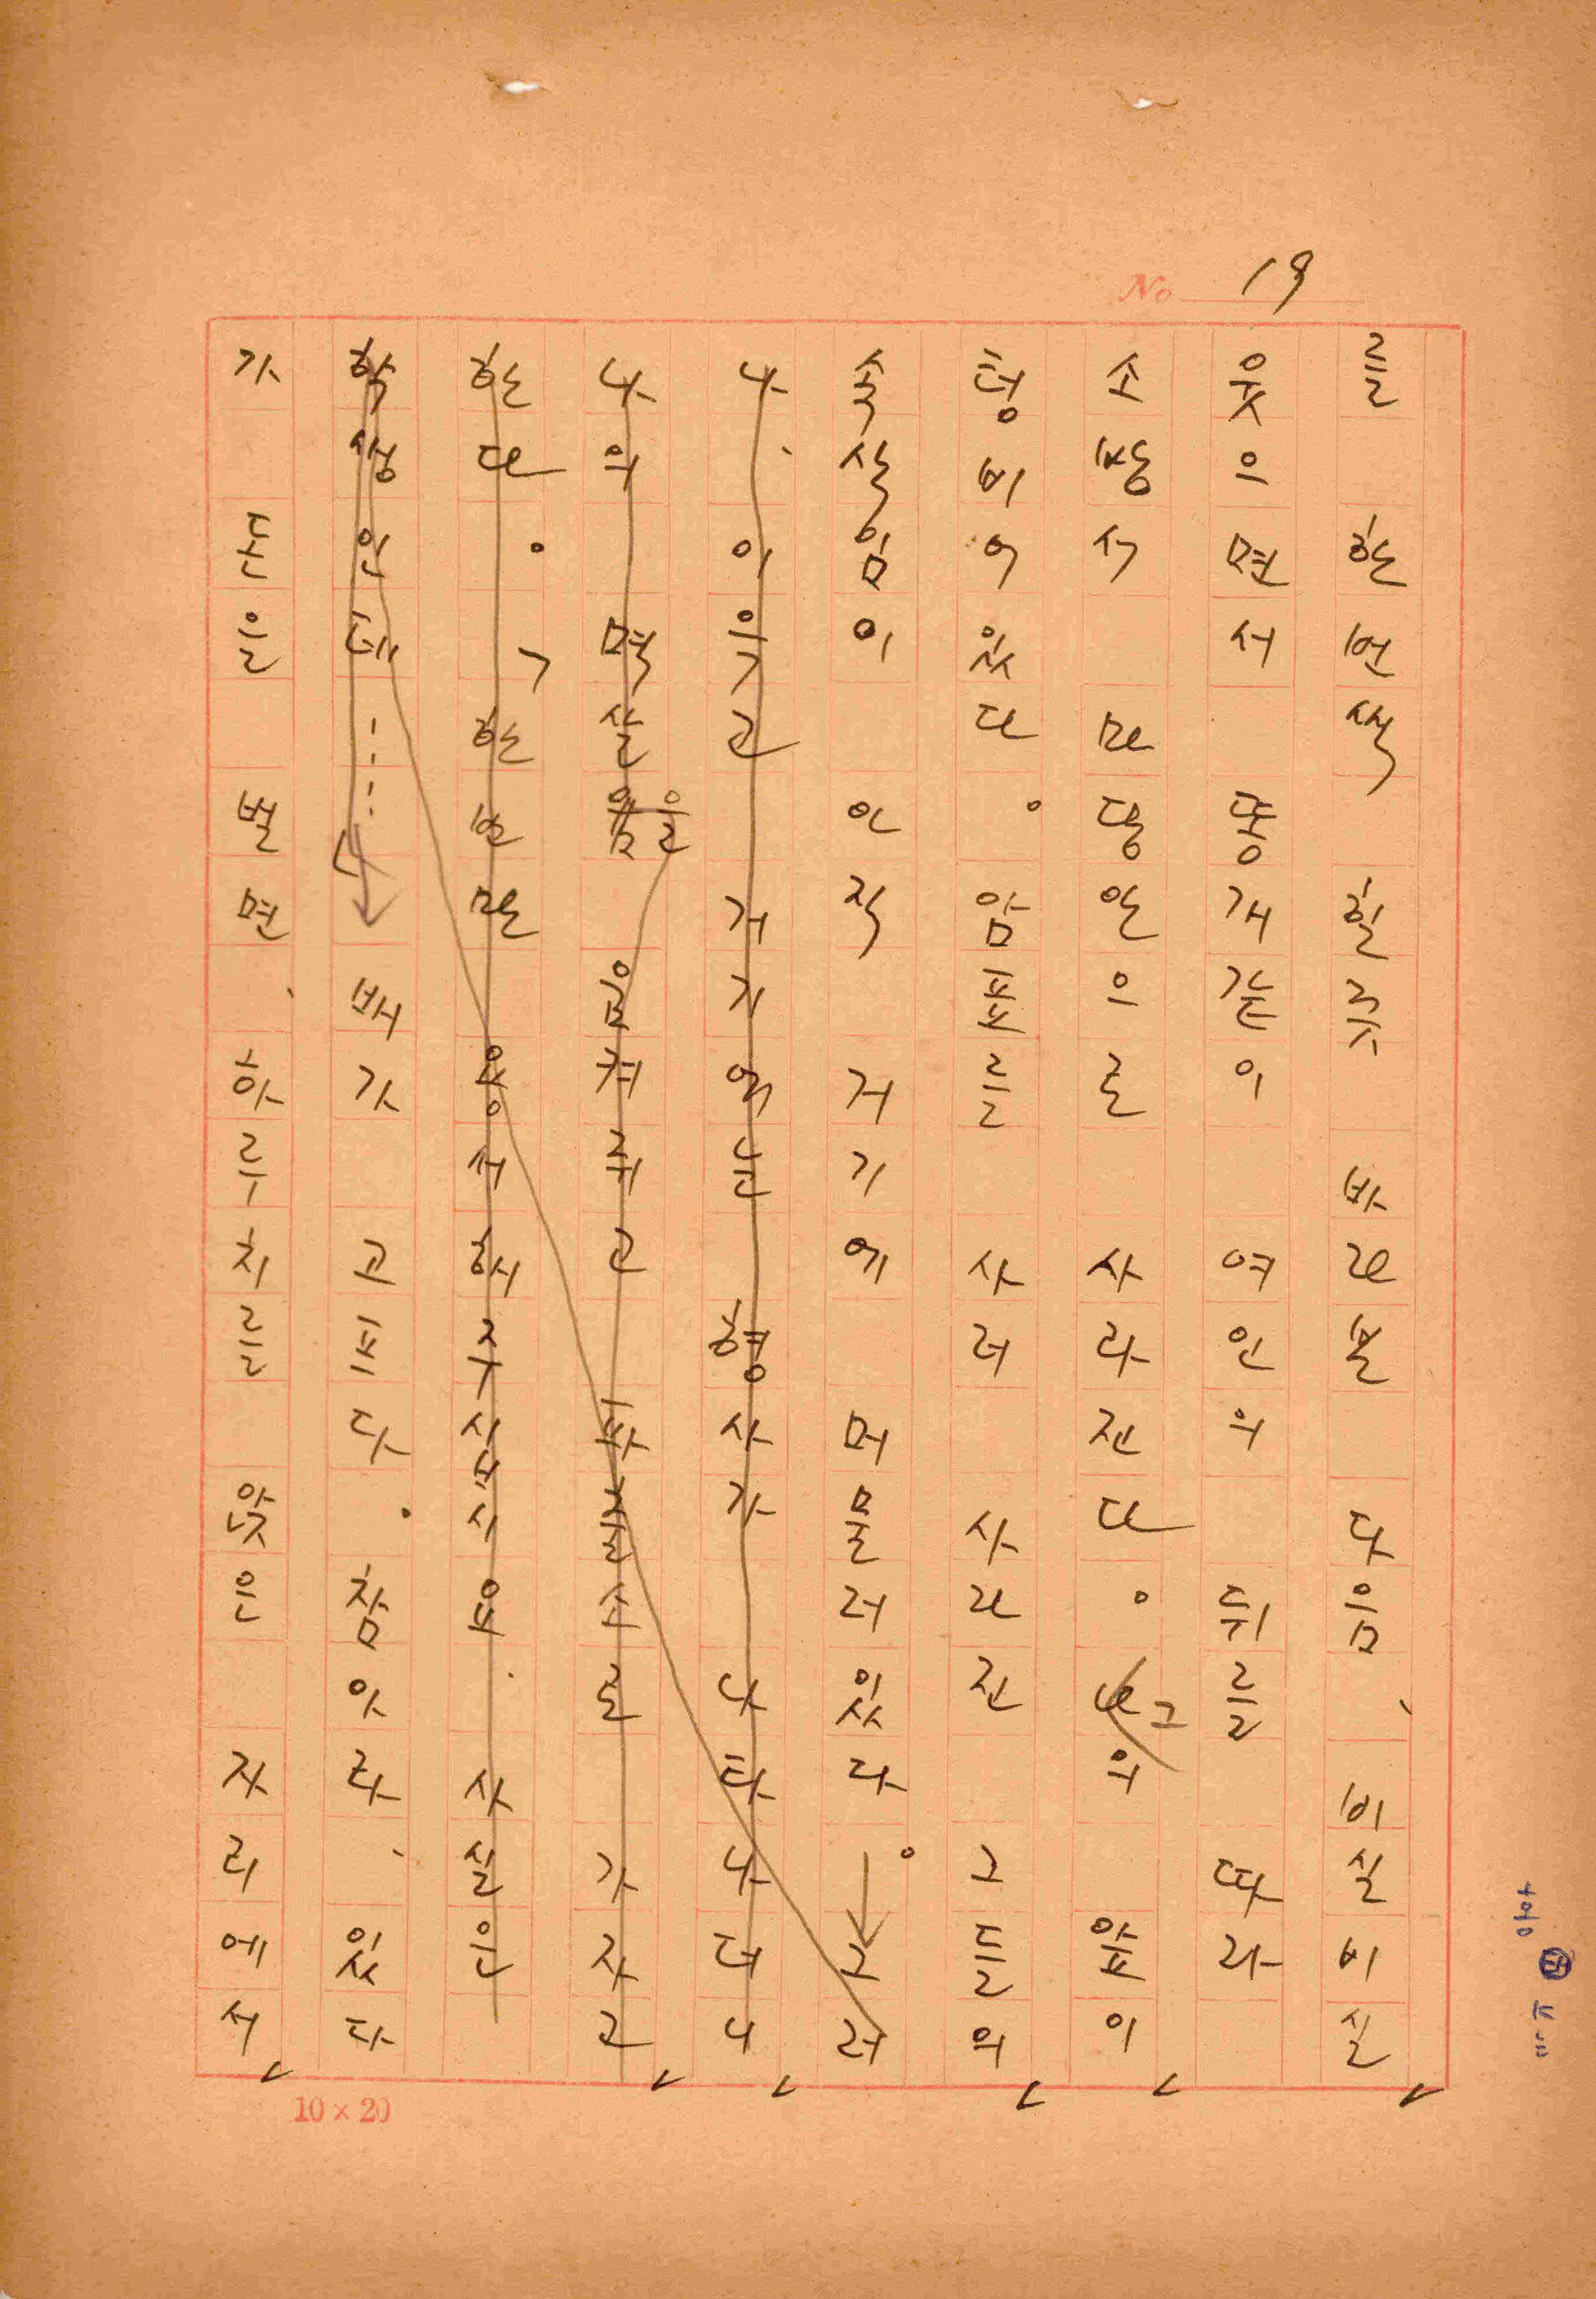 No 19
를 한번씩 힐끗 바라본 다음、비실비실
웃으면서 똥개같이 여인의 뒤를 따라
소방서 사라진다。그의 앞이
텅 비어 있다。암표를 사러 사라진 그들의
속삭임이 안직 거기에 머물러 있다。그러
나、이윽고 형사가 나타나더니
나의 멱살을 움켜쥐고 파출소로 가자고
한다。「한번만 용서해주십시요.사실은
학생인데…… 배가 고프다. 참아라、있다
가 돈을 벌면、하루치를 앉은 자리에서
10×20